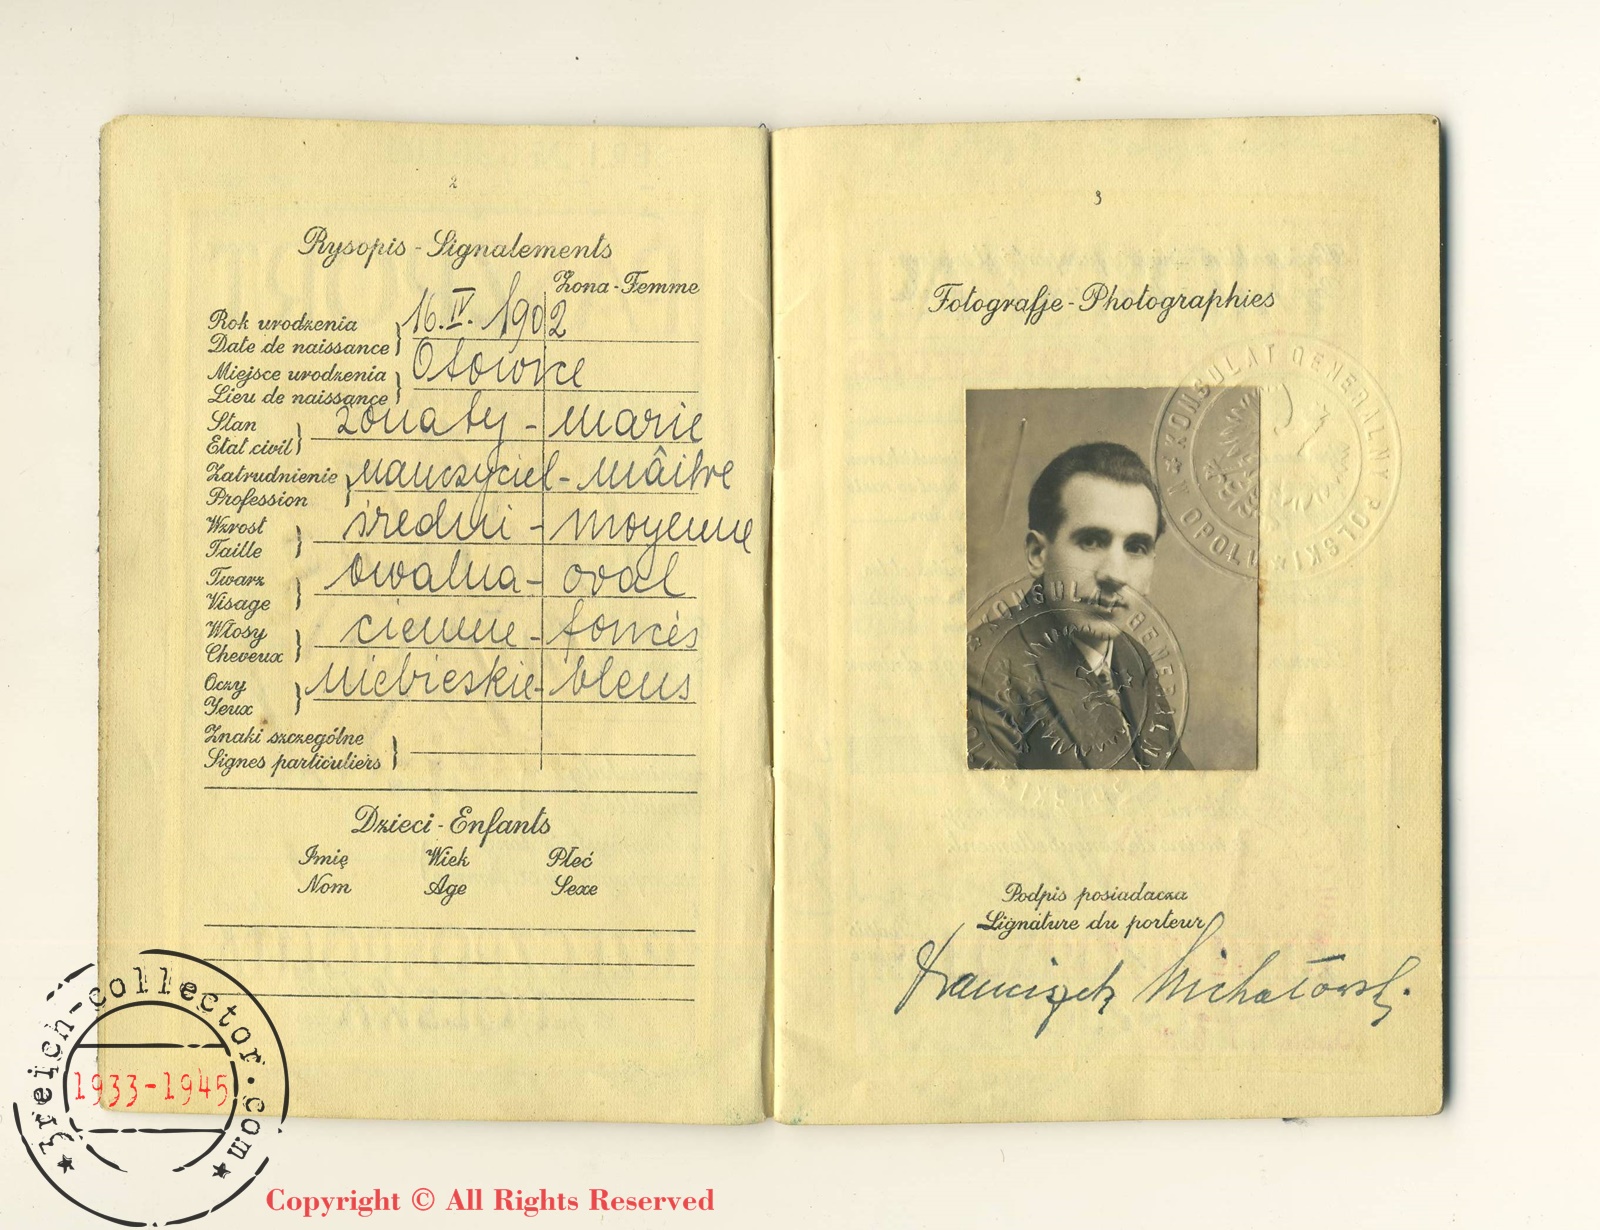 2
Rysopis - Signalements
Żona - Femme
Rok urodzenia
Date de naissance
16. IV. 1902
Miejsce urodzenia
Lieu de naissance
Otowice
Stan
Etat civil
żonaty - marié
Zatrudnienie
Profession
nauczyciel - maître
Wzrost
Taille
średni - moyenne
Twarz
Visage
owalna - oval
Włosy
Cheveux
ciemne - foncés
Oczy
Yeux
niebieskie - bleus
Znaki szczególne
Signes particuliers
Dzieci - Enfants
Imię Wiek Płeć
Nom Age Sexe
3
Fotografje - Photographies
KONSULAT GENERALNY POLSKI W OPOLU
KONSULAT GENERALNY
Podpis posiadacza
Signature du porteur
Franciszek Michałowski
3reich-collector.com
1933-1945
Copyright © All Rights Reserved